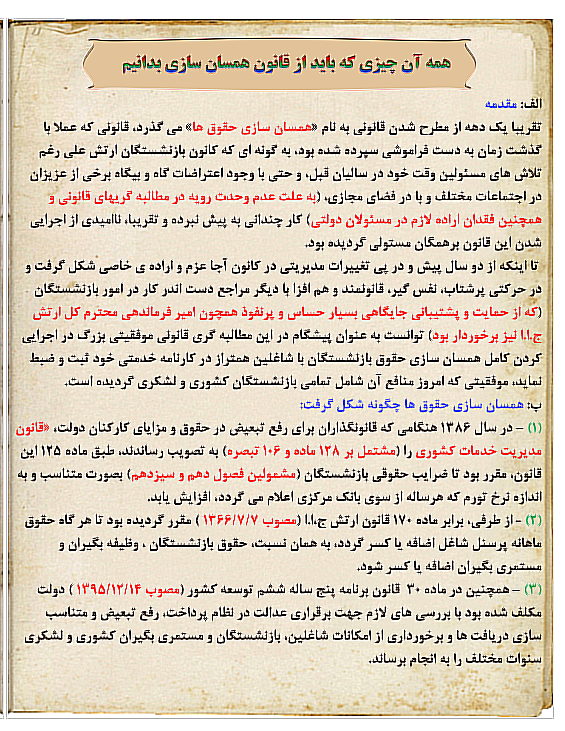 همه آن چیزی که باید از قانون همسان سازی بدانیم
الف: مقدمه
تقریبا یک دهه از مطرح شدن قانونی به نام «همسان سازی حقوق ها» می گذرد، قانونی که عملا با
گذشت زمان به دست فراموشی سپرده شده بود، به گونه ای که کانون بازنشستگان ارتش علی رغم
تلاش های مسئولین وقت خود در سالیان قبل، و حتی با وجود اعتراضات گاه و بیگاه برخی از عزیزان
در اجتماعات مختلف و یا در فضای مجازی، (به علت عدم وحدت رویه در مطالبه گریهای قانونی و
همچنین فقدان اراده لازم در مسئولان دولتی) کار چندانی به پیش نبرده و تقریبا، ناامیدی از اجرایی
شدن این قانون برهمگان مستولی گردیده بود.
تا اینکه از دو سال پیش و در پی تغییرات مدیریتی در کانون آجا عزم و اراده ی خاصی شکل گرفت و
در حرکتی پرشتاب، نفس گیر، قانونمند و هم افزا با دیگر مراجع دست اندر کار در امور بازنشستگان
(که از حمایت و پشتیبانی جایگاهی بسیار حساس و پرنفوذ همچون امیر فرماندهی محترم کل ارتش
ج.ا.ا نیز برخوردار بود) توانست به عنوان پیشگام در این مطالبه گری قانونی موفقیتی بزرگ در اجرایی
کردن کامل همسان سازی حقوق بازنشستگان با شاغلین همتراز در کارنامه خدمتی خود ثبت و ضبط
نماید، موفقیتی که امروز منافع آن شامل تمامی بازنشستگان کشوری و لشکری گردیده است.
ب: همسان سازی حقوق ها چگونه شکل گرفت:
(۱) – در سال ۱۳۸۶ هنگامی که قانونگذاران برای رفع تبعیض در حقوق و مزایای کارکنان دولت، «قانون
مدیریت خدمات کشوری را (مشتمل بر ۱۲۸ ماده و ۱۰۶ تبصره) به تصویب رساندند، طبق ماده ۱۲۵ این
قانون، مقرر بود تا ضرایب حقوقی بازنشستگان (مشمولین فصول دهم و سیزدهم) بصورت متناسب و به
اندازه نرخ تورم که هرساله از سوی بانک مرکزی اعلام می گردد، افزایش یابد.
(۲) - از طرفی، برابر ماده ۱۷۰ قانون ارتش ج.ا.ا (مصوب ۱۳۶۶/۷/۷) مقرر گردیده بود تا هر گاه حقوق
ماهانه پرسنل شاغل اضافه یا کسر گردد، به همان نسبت، حقوق بازنشستگان ، وظیفه بگیران و
مستمری بگیران اضافه یا کسر شود.
(۳) – همچنین در ماده ۳۰ قانون برنامه پنج ساله ششم توسعه کشور (مصوب ۱۳۹۵/۱۲/۱۴ ) دولت
مکلف شده بود با بررسی های لازم جهت برقراری عدالت در نظام پرداخت، رفع تبعیض و متناسب
سازی دریافت ها و برخورداری از امکانات شاغلین، بازنشستگان و مستمری بگیران کشوری و لشکری
سنوات مختلف را به انجام برساند.